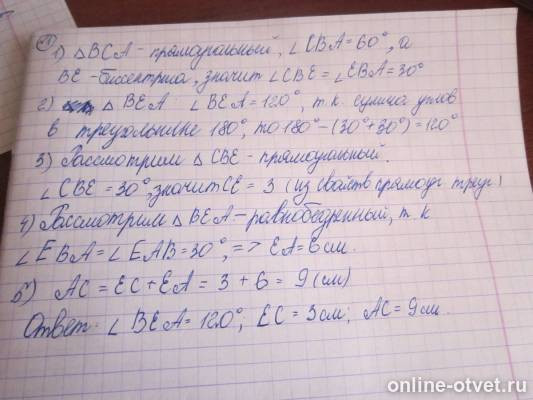 1) △BCA - прямоугольный, ∠CBA = 60°, а
BE - биссектриса, значит ∠CBE = ∠EBA = 30°
2) △BEA ∠BEA = 120°, т.к. сумма углов
в треугольнике 180°, то 180° - (30° + 30°) = 120°
3) Рассмотрим △CBE - прямоугольный.
∠CBE = 30°, значит CE = 3 (из свойств прямоуг треуг)
4) Рассмотрим △BEA - равнобедренный, т.к
∠EBA = ∠EAB = 30°, => EA = 6 см.
5) AC = EC + EA = 3 + 6 = 9 (см)
Ответ: ∠BEA = 120°; EC = 3 см; AC = 9 см.
online-otvet.ru